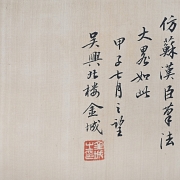 仿蘇漢臣筆法
大畧如此
甲子七月之望
吳興北樓金城